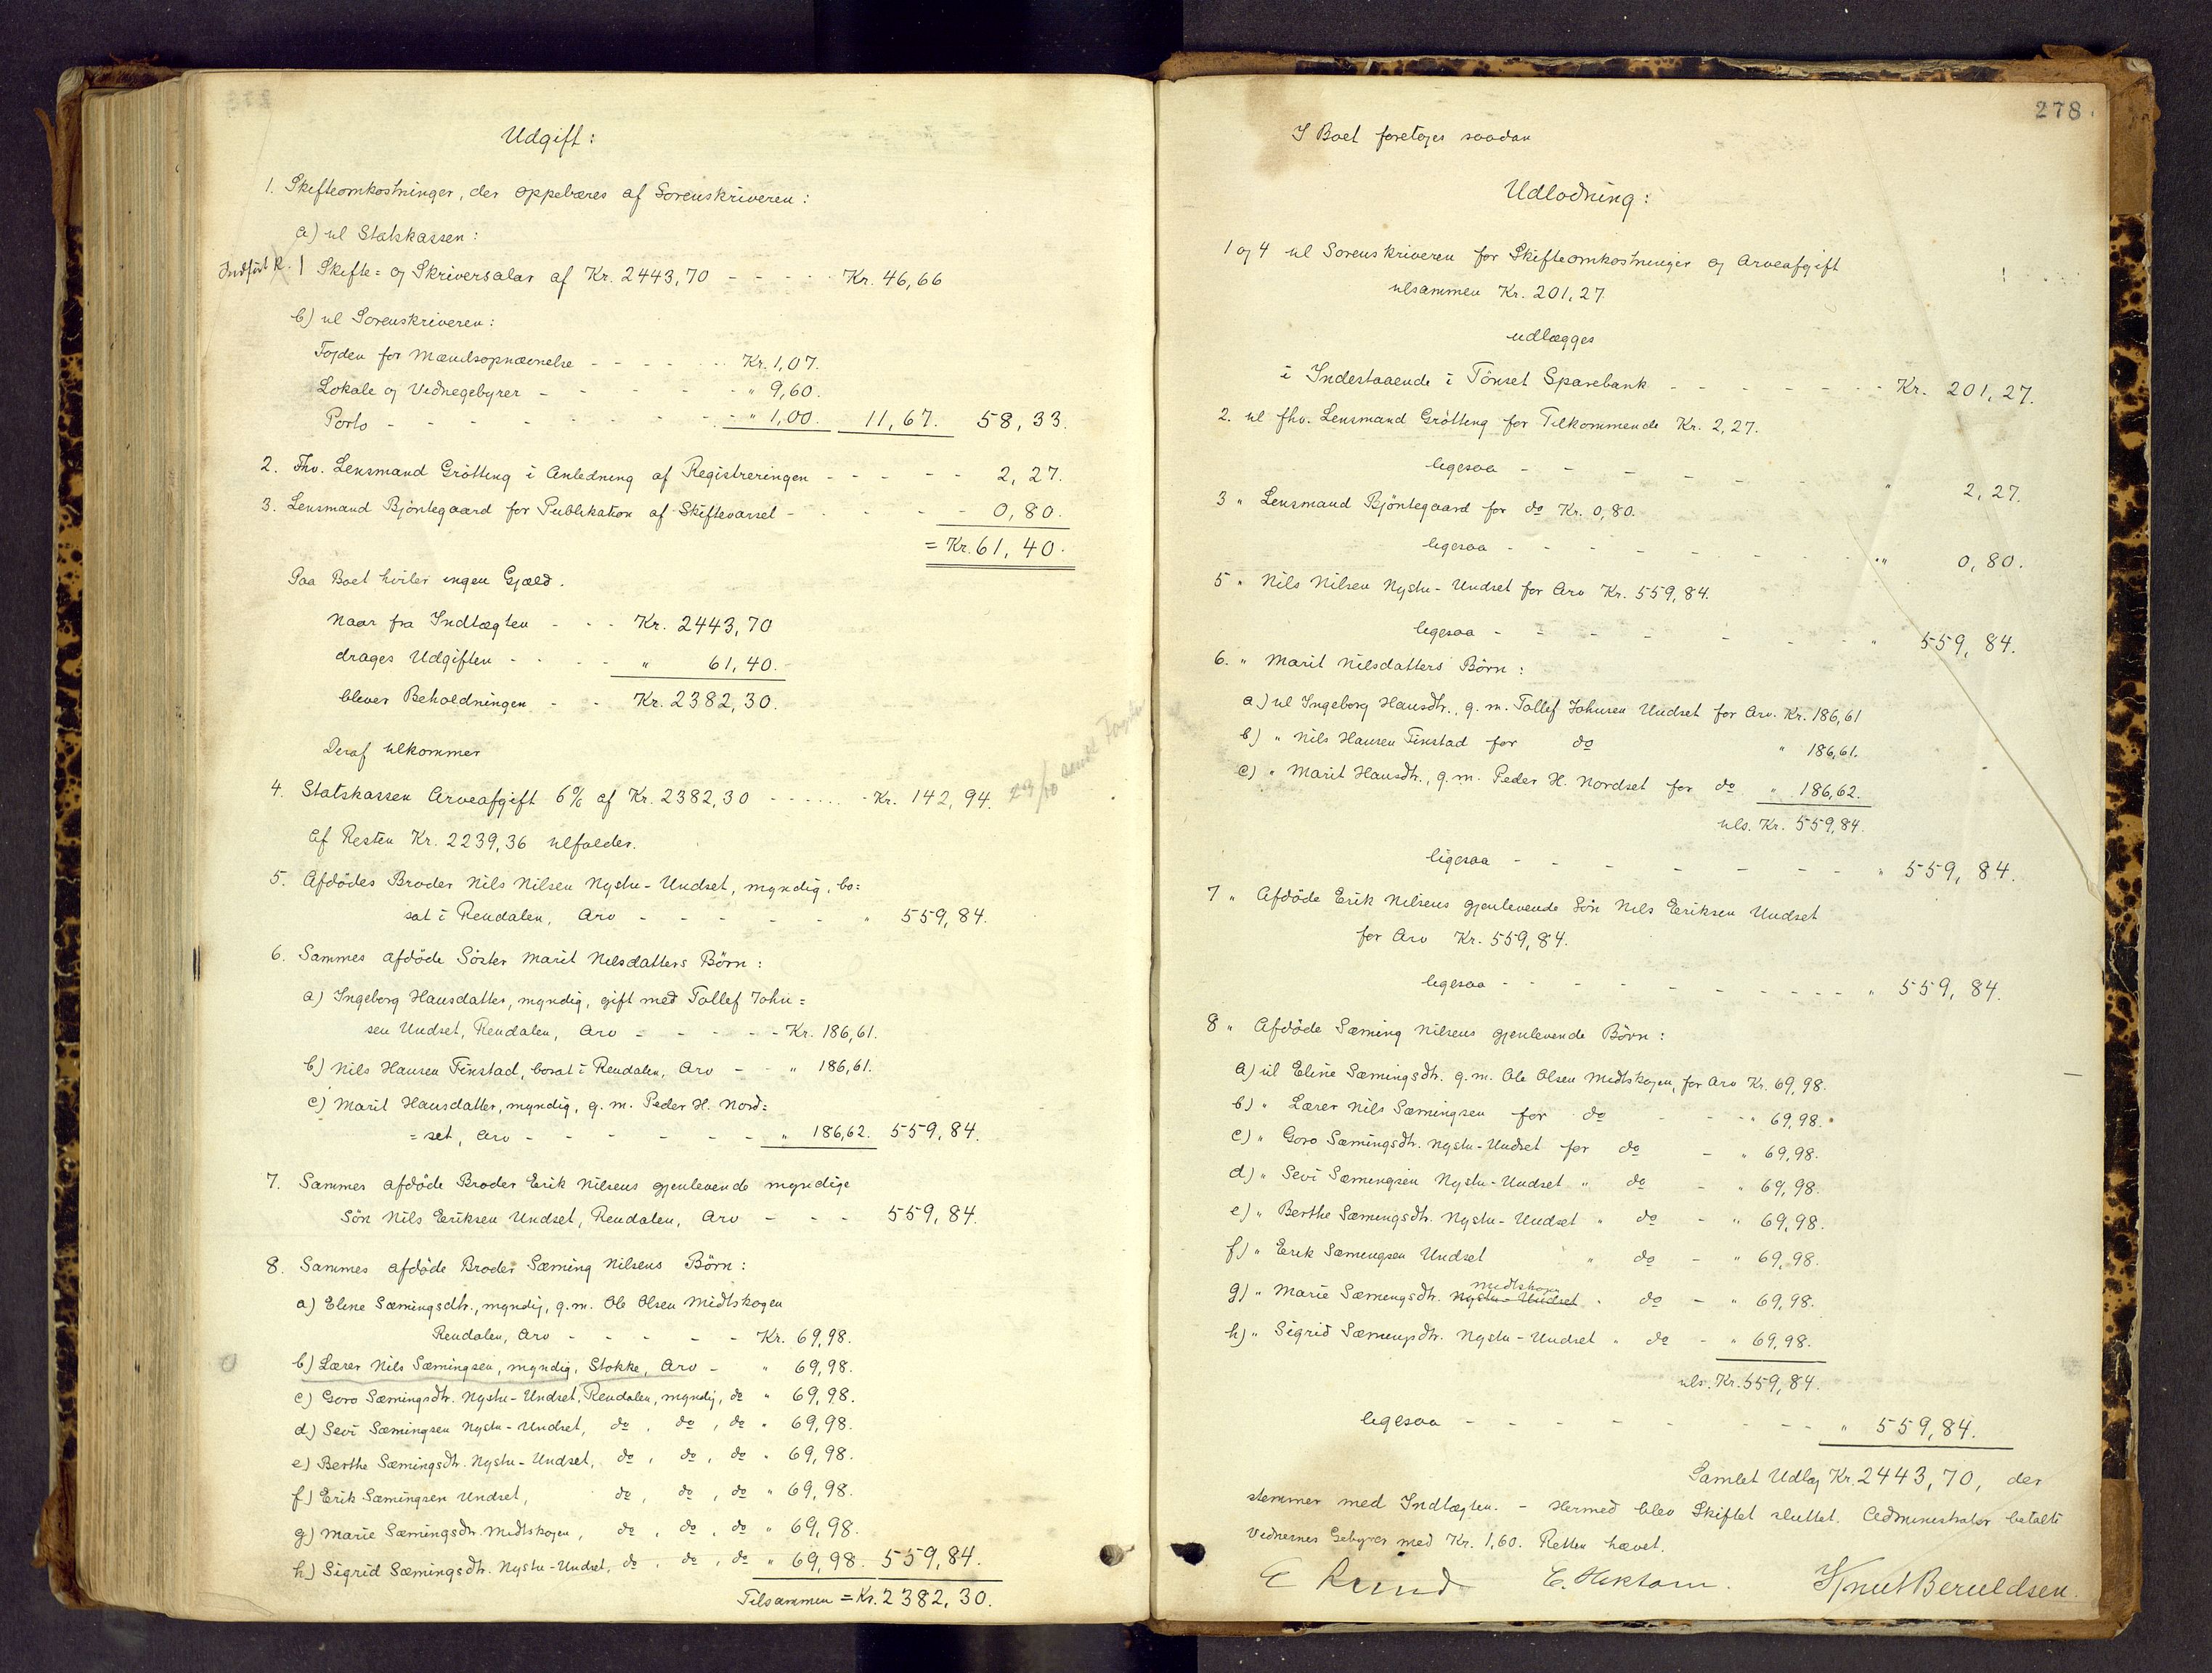 Udgift:
1. Skifteomkostninger, der oppebæres af Sorenskriveren:
a) til Statskassen:
Indført R. | Skifte= og Skriversalar af Kr. 2443,70 - - - - - Kr. 46,66
b) til Sorenskriveren:
Fogden for Mændsopnævnelse - - - - - - Kr. 1,07.
Lokale og Vidnegebyrer - - - - - " 9,60.
Porto - - - - - - - " 1,00. 11,67. 58,33.
2. Fhv. Lensmand Grötting i Anledning af Registreringen - - - - - 2,27.
3. Lensmand Bjöntegaard for Publikation af Skiftevarsel - - - - - 0,80.
= Kr. 61,40.
Paa Boet hviler ingen Gjæld.
Naar fra Indtægten - - - Kr. 2443,70
drages Udgiften - - - - " 61,40.
bliver Beholdningen - - Kr. 2382,30.
Deraf tilkommer
4. Statskassen Arveafgift 6% af Kr. 2382,30 - - - - - - Kr. 142,94.
Af Resten Kr. 2239,36 tilfalder.
5. Afdödes Broder Nils Nilsen Nystu-Undset, myndig, bo=
sat i Rendalen, Arv - - - - - " 559,84.
6. Sammes afdöde Söster Marit Nilsdatters Börn:
a) Ingeborg Hansdatter, myndig, gift med Tollef John=
sen Undset, Rendalen, Arv - - - - - Kr. 186,61.
b) Nils Hansen Finstad, bosat i Rendalen, Arv - - " 186,61.
c) Marit Hansdatter, myndig, g. m. Peder H. Nord=
=set, Arv - - - - - - - " 186,62. 559,84.
7. Sammes afdöde Broder Erik Nilsens gjenlevende myndige
Sön Nils Eriksen Undset, Rendalen, Arv - - - 559,84.
8. Sammes afdöde Broder Sæming Nilsens Börn:
a) Eline Sæmingsdtr., myndig, g. m. Ole Olsen Midtskogen
Rendalen, Arv - - - - - Kr. 69,98.
b) Lærer Nils Sæmingsen, myndig, Stokke, Arv - " 69,98.
c) Goro Sæmingsdtr. Nystu-Undset, Rendalen, myndig, do " 69,98.
d) Sevi Sæmingsen Nystu-Undset, do, do, do " 69,98.
e) Berthe Sæmingsdtr. Nystu-Undset, do, do, do " 69,98.
f) Erik Sæmingsen Undset, do, do, do " 69,98.
g) Marie Sæmingsdtr. Midtskogen, do, do, do " 69,98.
h) Sigrid Sæmingsdtr. Nystu-Undset, do, do, do " 69,98. 559,84.
Tilsammen = Kr. 2382,30.
278.
I Boet foretoges saadan
Udlodning:
1 og 4 til Sorenskriveren for Skifteomkostninger og Arveafgift
tilsammen Kr. 201,27.
udlægges
i Indestaaende i Tönset Sparebank - - - - - - - Kr. 201,27.
2. til fhv. Lensmand Grötting for Tilkommende Kr. 2,27.
ligesaa - - - - - - " 2,27.
3 " Lensmand Bjöntegaard for do Kr. 0,80.
ligesaa - - - - - - - - " 0,80.
5 " Nils Nilsen Nystu-Undset for Arv Kr. 559,84.
ligesaa - - - - - - - " 559,84.
6. " Marit Nilsdatters Börn:
a) til Ingeborg Hansdtr., g. m. Tollef Johnsen Undset for Arv. Kr. 186,61
b) " Nils Hansen Finstad for do " 186,61.
c) " Marit Hansdtr., g. m. Peder H. Nordset for do " 186,62.
tils. Kr. 559,84.
ligesaa - - - - - - - " 559,84.
7 " Afdöde Erik Nilsens gjenlevende Sön Nils Eriksen Undset
for Arv Kr. 559,84.
ligesaa - - - - - - - - - " 559,84.
8 " Afdöde Sæming Nilsens gjenlevende Börn:
a) til Eline Sæmingsdtr. g. m. Ole Olsen Midtskogen, for Arv Kr. 69,98.
b) " Lærer Nils Sæmingsen for do - - " 69,98.
c) " Goro Sæmingsdtr. Nystu-Undset for do - " 69,98.
d) " Sevi Sæmingsen Nystu-Undset " do - " 69,98.
e) " Berthe Sæmingsdtr. Nystu-Undset " do - " 69,98.
f) " Erik Sæmingsen Undset " do - " 69,98.
Midtskogen
g) " Marie Sæmingsdtr. Nystu-Undset " do - " 69,98.
h) " Sigrid Sæmingsdtr. Nystu-Undset " do - " 69,98.
tils. Kr. 559,84.
ligesaa - - - - - - - - " 559,84.
Samlet Udlæg Kr. 2443,70, der
stemmer med Indtægten. - Hermed blev Skiftet sluttet. Administrator betalte
Vidnernes Gebyrer med Kr. 1,60. Retten hævet.
E Lund E. Hektoen. Knut Beruldsen.